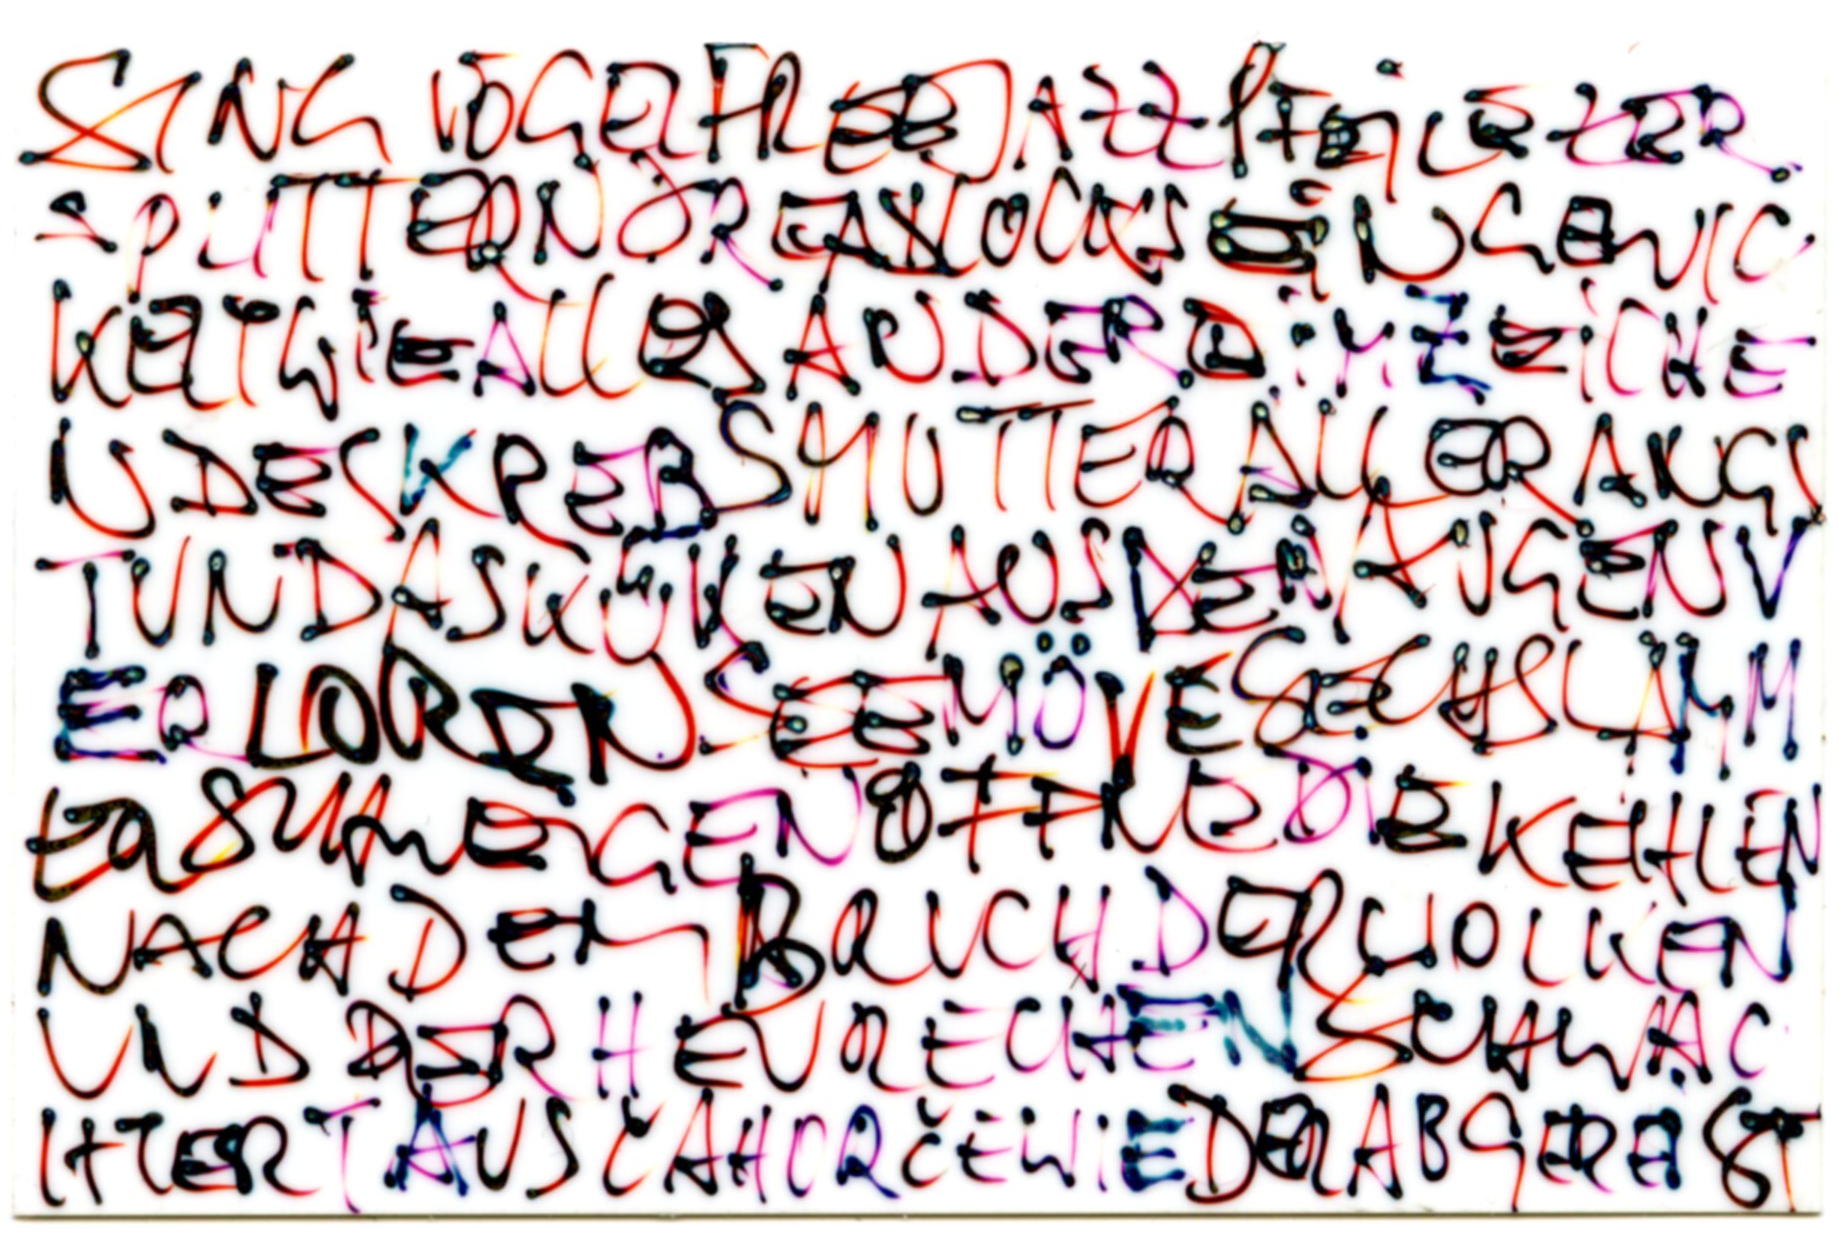 SING VOGELFREE JAZZPFEIL LETZTER
SPLITTERN ÖREABLOCKS EINGEWIC
KELT WIE ALLES ANDERE D IM ZEICHE
N DES KREBS MUTTER ALLER ANGS
T UND AS KÜKEN AUS DEN AUGEN V
ERLORDN SEEMÖVE SECHS LÄMM
ER SCHWEIGEN ÖFFNE DIE KEHLEN
NACH DEM BRUCH DER WOLKEN
UND DER HEURECHEN SCHWÄC
HTER TAUS ČAHORČE WIEDER ABGEREIST